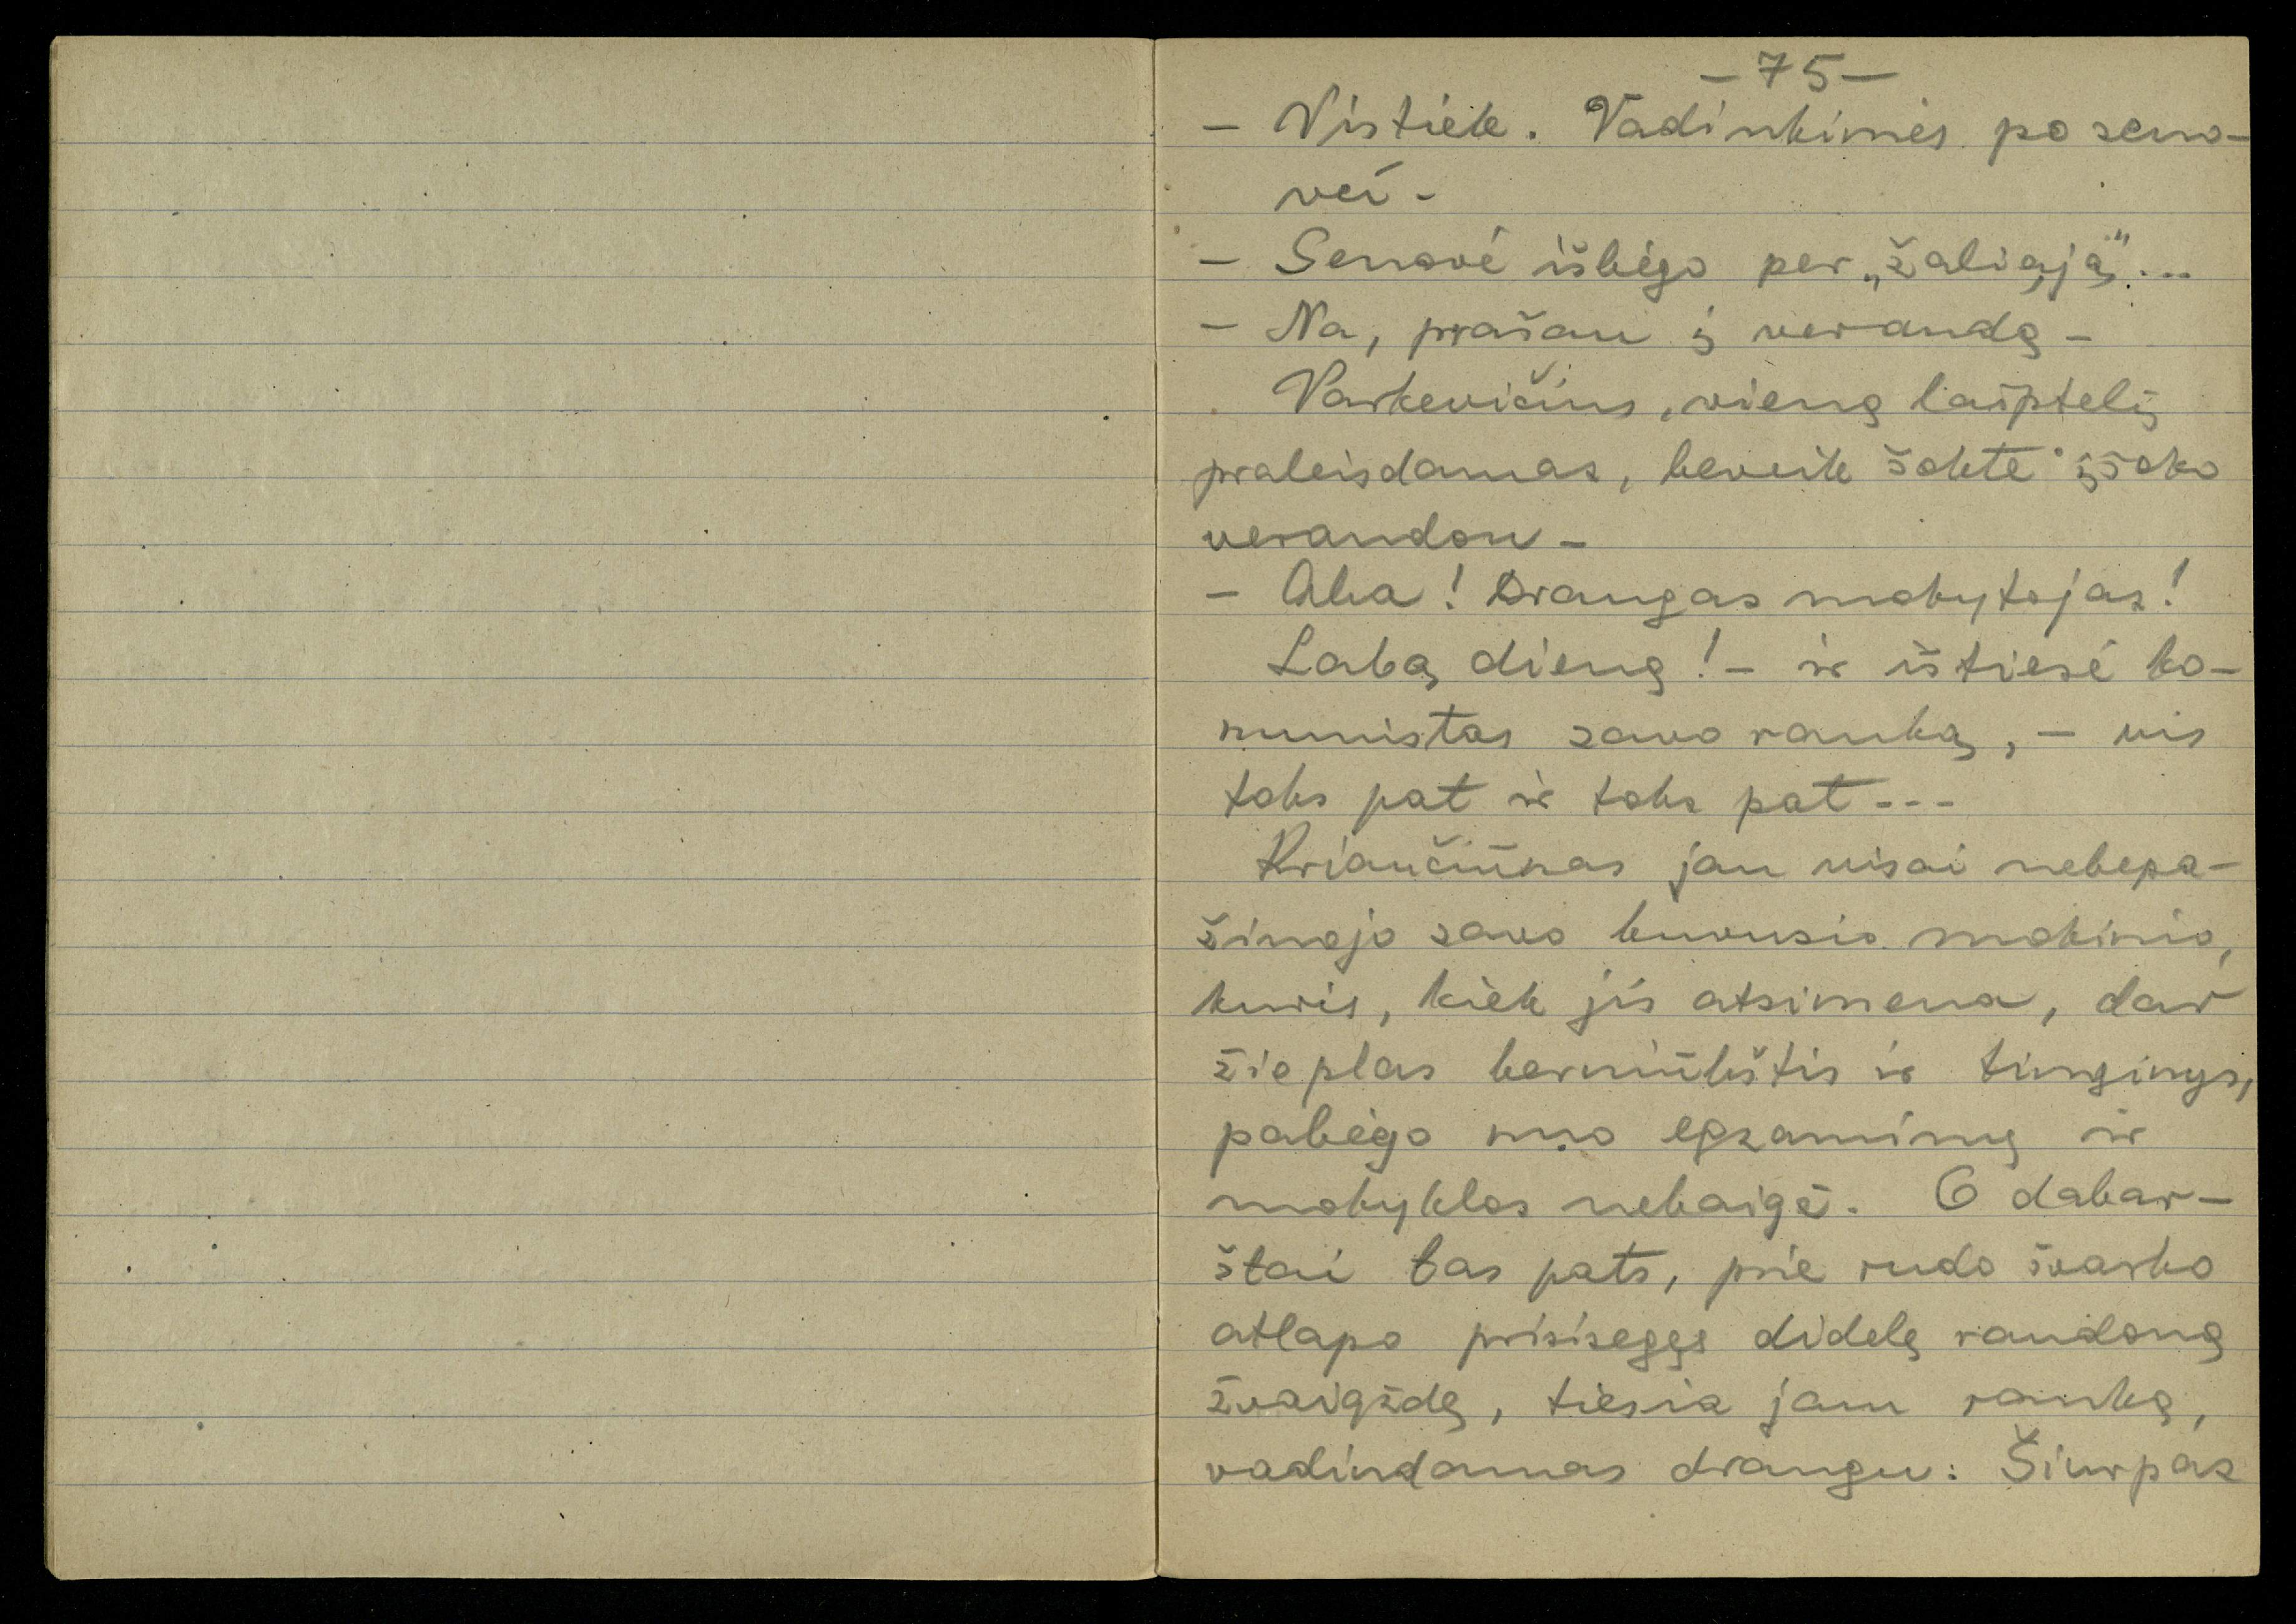 — 75 —
— Vistiek. Vadinkimės po seno-
vei -
— Senovė išbėgo per „žaliąją"...
— Na, prašau į verandą -
Varkevičius, vieną laiptelį
praleisdamas, beveik šokte įšoko
verandon -
— Aha! Draugas mokytojas!
Labą dieną! - ir ištiesė ko-
munistas savo ranką, — vis
toks pat ir toks pat ---
Kriaučiūnas jau visai nebepa-
žinojo savo buvusio mokinio,
kuris, kiek jis atsimena, dar
žioplas berniūkštis ir tinginys,
pabėgo nuo egzaminų ir
mokyklos nebaigė. O dabar —
štai tas pats, prie rudo švarko
atlapo prisisegęs didelę raudoną
žvaigždę, tiesia jam ranką,
vadindamas draugu: Šiurpas